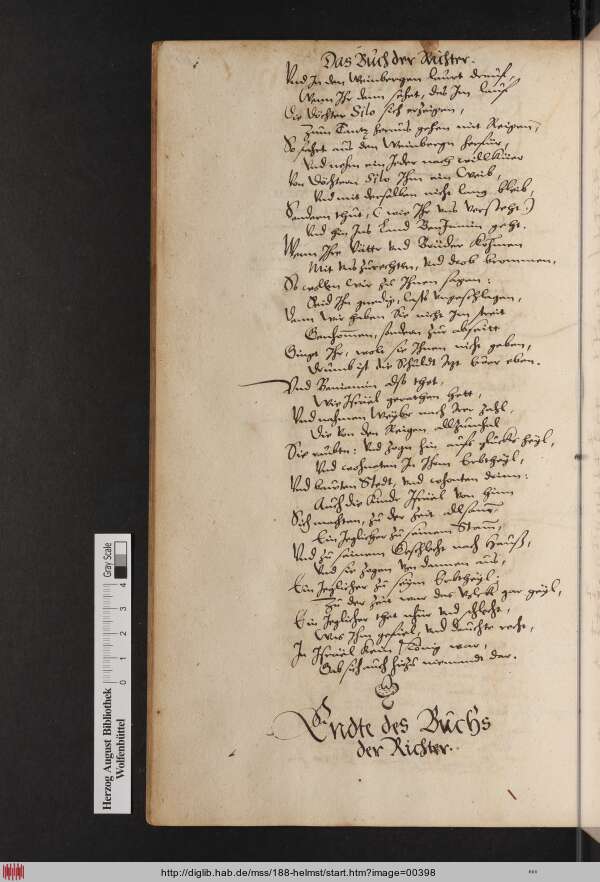 Das Buch der Richter.
Vnd In den Weinbergen laurt drauf,
Wenn Ihr dann sehet, das Im lauf
Die Döchter Silo sich erzeigen,
Zum Tantz heraus gehen mit Reigenn,
So fahrt aus den Weinbergn herfür,
Vnd nehm ein Jeder nach willkuer
Von Döchtern Silo Ihm ein Weib,
Vnd mit derselben nicht lang bleib,
Sondern thut, (wie Ihr uns versteht)
Vnd hin Ins Land BenJamin geht.
Wenn Ihre Vätter vnd Brüder kohmen
Mit uns zurechten, vnd drob brommen,
So wollen wir zu Ihnen sagen:
Seid Ihn gnedig, lasts vngeschlagen,
Denn wir haben Sie nicht Im streit
Genohmmen, sondern zur
Ihr, wolt sie Ihnen nicht geben,
Drumb ist die Schuldt eben.
Vnd Beniamin also thet,
Wie Israel gerathen hett,
Vnd nahmen Weyber nach Irer zahl,
Die von den Reigen allzumhal
Sie raubtn: vnd zogn hin aufs glücks heyl,
Vnd wohneten In Ihrm Erbtheyl,
Vnd bauten Stedt, vnd wohnten drinn:
Auch die Kinder Israel von hinn
Sich machten, zu der Zeit allsamt,
Ein Jeglicher zu seinem Stamm,
Vnd zu seinem Geschlecht nach Hauß,
Vnd sie zogen von dannen aus,
Ein Jeglicher zu seym Erbtheyl;
Zu der Zeit war das Volck gar geyl,
Ein Jeglicher thet vnd schlecht,
Was Ihm gefiel, vnd dauchte recht,
In Israel kein König war,
Gab sich auch hiezu niemandt dar.
Endte des Buchs
der Richter.
Herzog August Bibliothek
Wolfenbüttel
0 1 2 3 4
Gray Scale
http://diglib.hab.de/mss/188-helmst/start.htm?image=00398